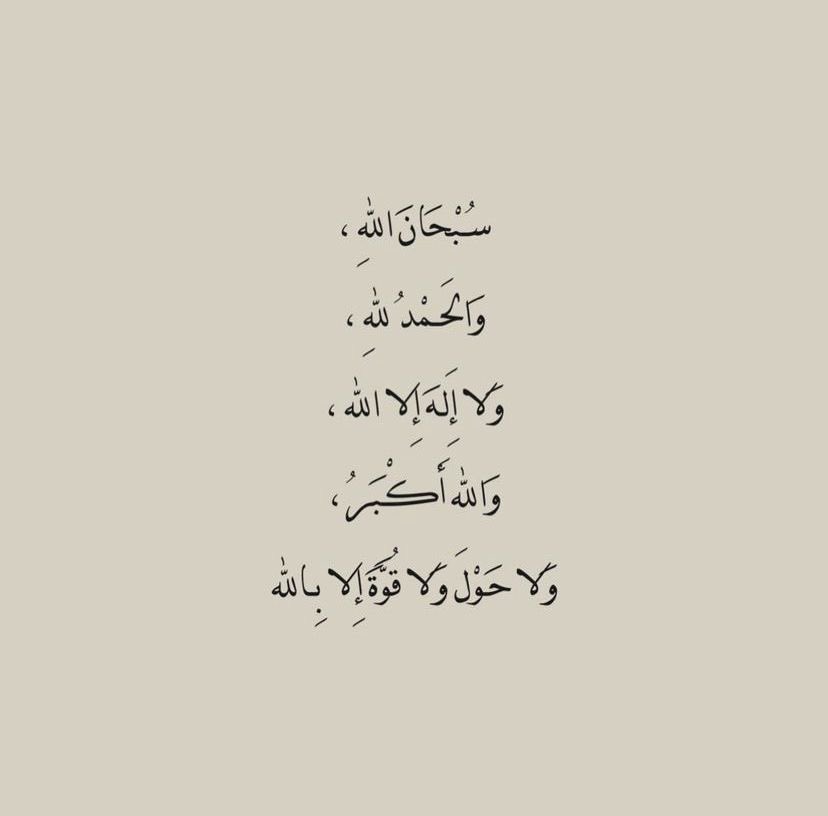 سُبْحَانَ اللهِ ،
وَالَحَمْدُ للهِ ،
وَلا إِلَهَ إِلا الله ،
وَالله أَكْبَرُ ،
وَلا حَوْلَ وَلا قُوَّةَ إِلا بِالله